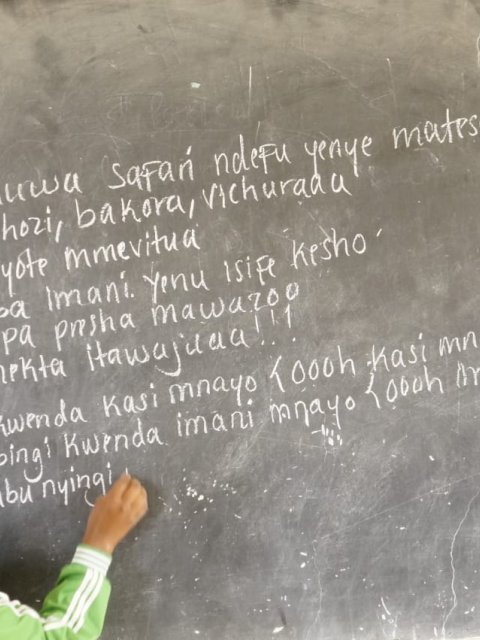 uwa safari ndefu yenye mates
hozi, bakora, vichuraaa
yote mmevitua
ba imani yenu isife kesho
pa presha mawazoo
nekta itawajuaa!!!
kwenda kasi mnayo {oooh kasi mn
bingi kwenda imani mnayo {oooh
bu nyingi